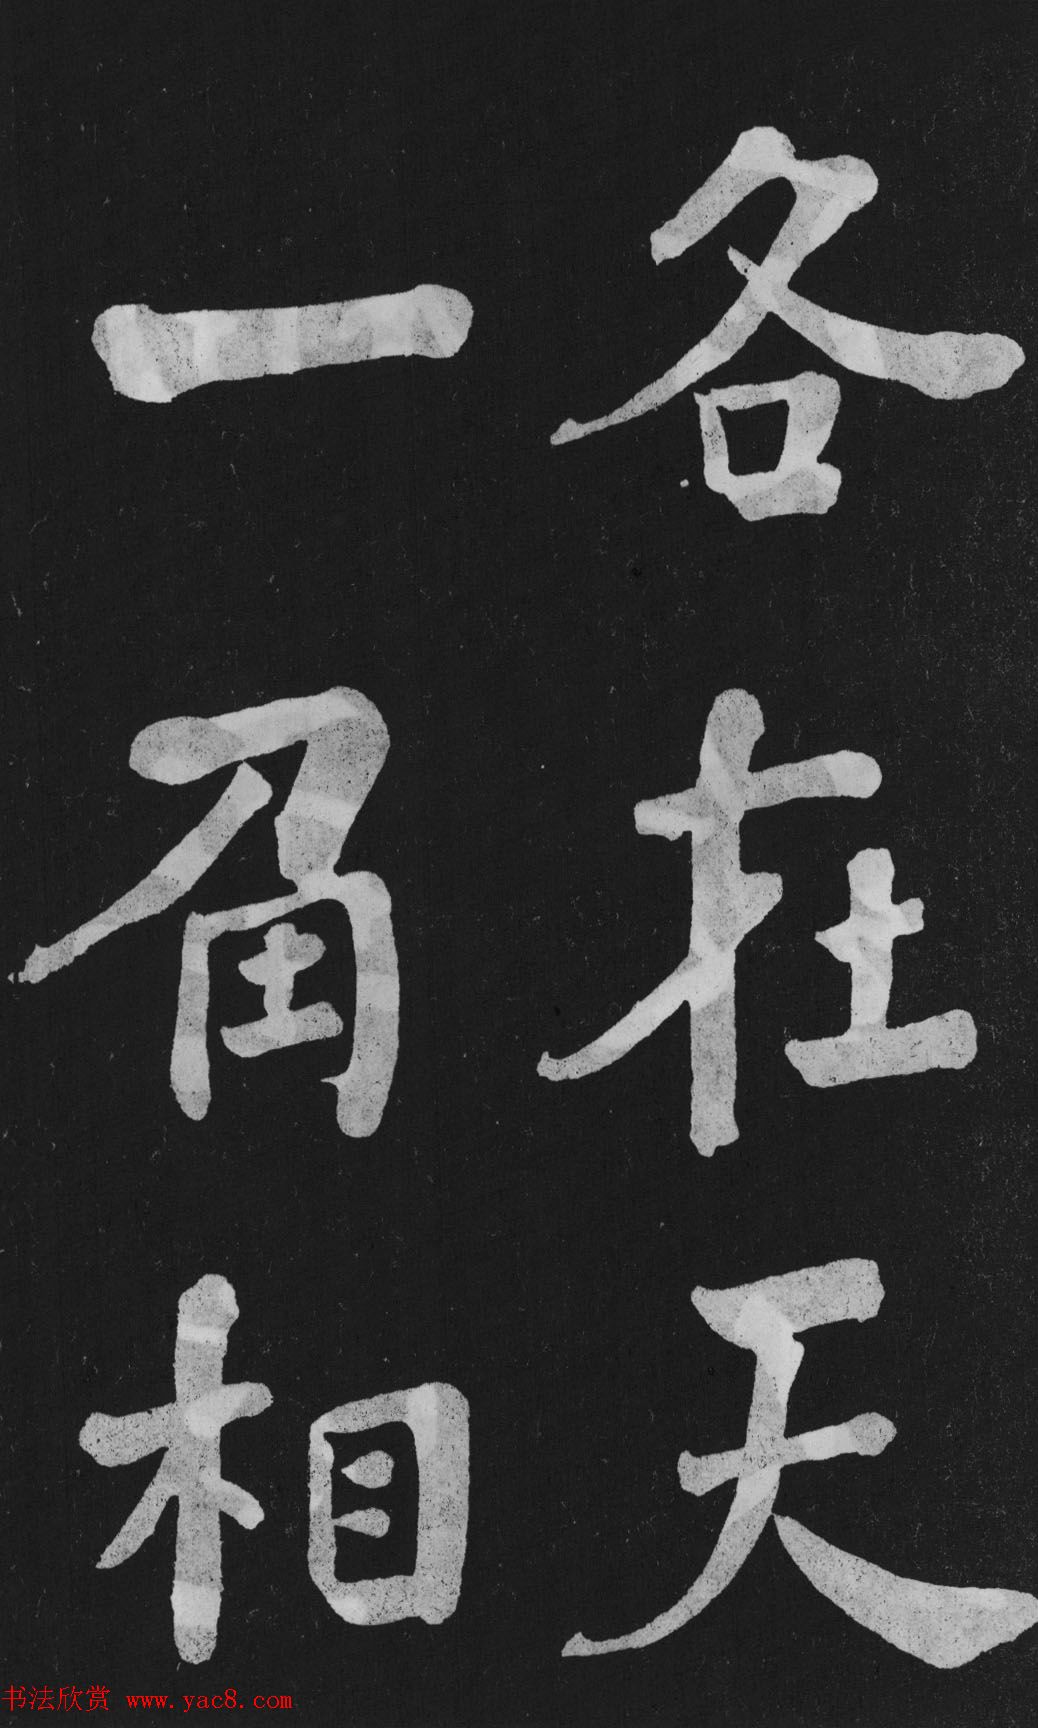 各在天
一角相
书法欣赏 www.yac8.com